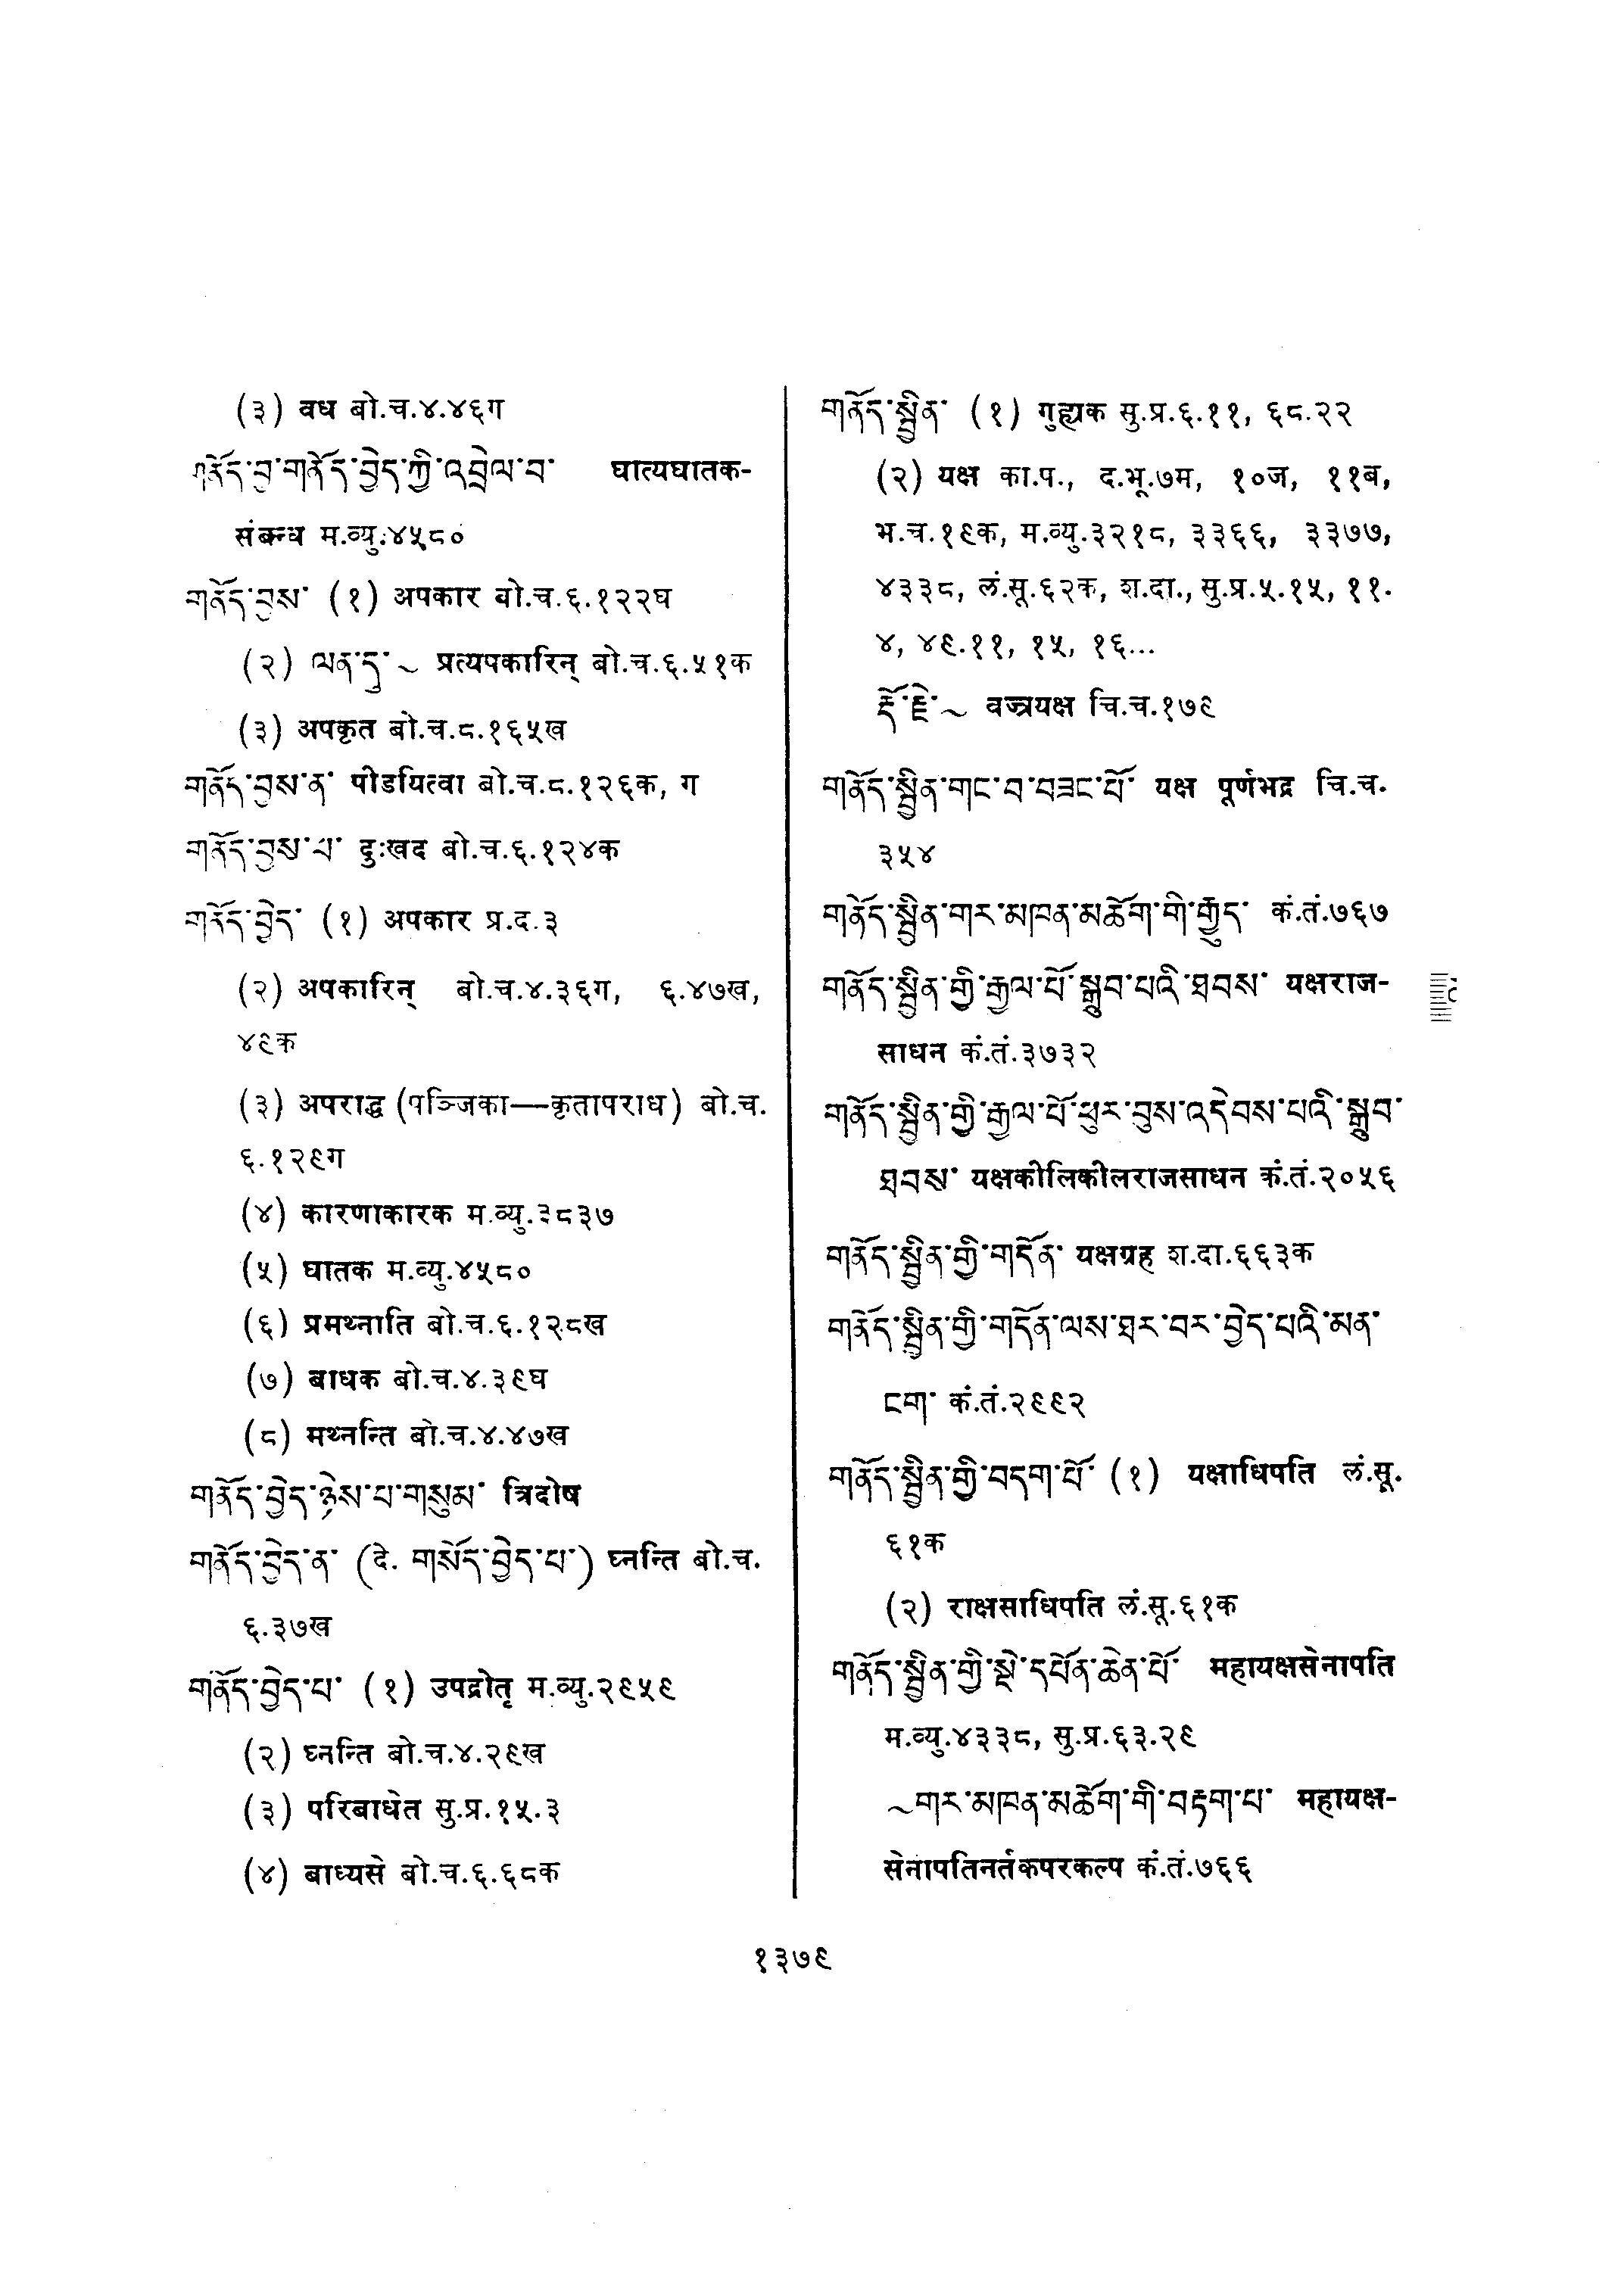 (३) वध बो.च.४.४६ग
གནོད་བྱ་གནོད་བྱེད་ཀྱི་འབྲེལ་བ་ घात्यघातक-
संबन्ध म.व्यु.४५८०
གནོད་བྱས་ (१) अपकार बो.च.६.१२२घ
(२) ལན་དུ་ ~ प्रत्यपकारिन् बो.च.६.५१क
(३) अपकृत बो.च.८.१६५ख
གནོད་བྱས་ན་ पीडयित्वा बो.च.८.१२६क, ग
གནོད་བྱས་པ་ दुःखद बो.च.६.१२४क
གནོད་བྱེད་ (१) अपकार प्र.द.३
(२) अपकारिन् बो.च.४.३६ग, ६.४७ख,
४९क
(३) अपराद्ध (पञ्जिका—कृतापराध) बो.च.
६.१२९ग
(४) कारणाकारक म.व्यु.३८३७
(५) घातक म.व्यु.४५८०
(६) प्रमथ्नाति बो.च.६.१२८ख
(७) बाधक बो.च.४.३९घ
(८) मथ्नन्ति बो.च.४.४७ख
གནོད་བྱེད་ཉེས་པ་གསུམ་ त्रिदोष
གནོད་བྱེད་ན་ (दे. གསོད་བྱེད་པ་) घ्नन्ति बो.च.
६.३७ख
གནོད་བྱེད་པ་ (१) उपद्रोतृ म.व्यु.२९५९
(२) घ्नन्ति बो.च.४.२९ख
(३) परिबाधेत सु.प्र.१५.३
(४) बाध्यसे बो.च.६.६८क
གནོད་སྦྱིན་ (१) गुह्यक सु.प्र.६.११, ६८.२२
(२) यक्ष का.प., द.भू.७म, १०ज, ११ब,
भ.च.१९क, म.व्यु.३२१८, ३३६६, ३३७७,
४३३८, लं.सू.६२क, श.दा., सु.प्र.५.१५, ११.
४, ४९.११, १५, १६...
རྡོ་རྗེ་ ~ वज्रयक्ष चि.च.१७९
གནོད་སྦྱིན་གང་བ་བཟང་པོ་ यक्ष पूर्णभद्र चि.च.
३५४
གནོད་སྦྱིན་གར་མཁན་མཆོག་གི་རྒྱུད་ कं.तं.७६७
གནོད་སྦྱིན་གྱི་རྒྱལ་པོ་སྒྲུབ་པའི་ཐབས་ यक्षराज-
साधन कं.तं.३७३२
གནོད་སྦྱིན་གྱི་རྒྱལ་པོ་ཕུར་བུས་འདེབས་པའི་སྒྲུབ་
ཐབས་ यक्षकीलिकीलराजसाधन कं.तं.२०५६
གནོད་སྦྱིན་གྱི་གདོན་ यक्षग्रह श.दा.६६३क
གནོད་སྦྱིན་གྱི་གདོན་ལས་ཐར་བར་བྱེད་པའི་མན་
ངག་ कं.तं.२९९२
གནོད་སྦྱིན་གྱི་བདག་པོ་ (१) यक्षाधिपति लं.सू.
६१क
(२) राक्षसाधिपति लं.सू.६१क
གནོད་སྦྱིན་གྱི་སྡེ་དཔོན་ཆེན་པོ་ महायक्षसेनापति
म.व्यु.४३३८, सु.प्र.६३.२९
~གར་མཁན་མཆོག་གི་བརྟག་པ་ महायक्ष-
सेनापतिनर्तकपरकल्प कं.तं.७६६
१३७९